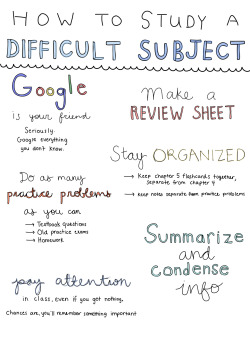 HOW TO STUDY A
DIFFICULT SUBJECT
Google
is your friend
Seriously.
Google everything
you don't know.
Make a
REVIEW SHEET
Stay ORGANIZED
→ Keep chapter 5 flashcards together,
separate from chapter 4
→ Keep notes separate from practice problems
Do as many
practice problems
as you can
→ Textbook questions
→ Old practice exams
→ Homework
Summarize
and
condense
info
pay attention
in class, even if you get nothing.
Chances are, you'll remember something important